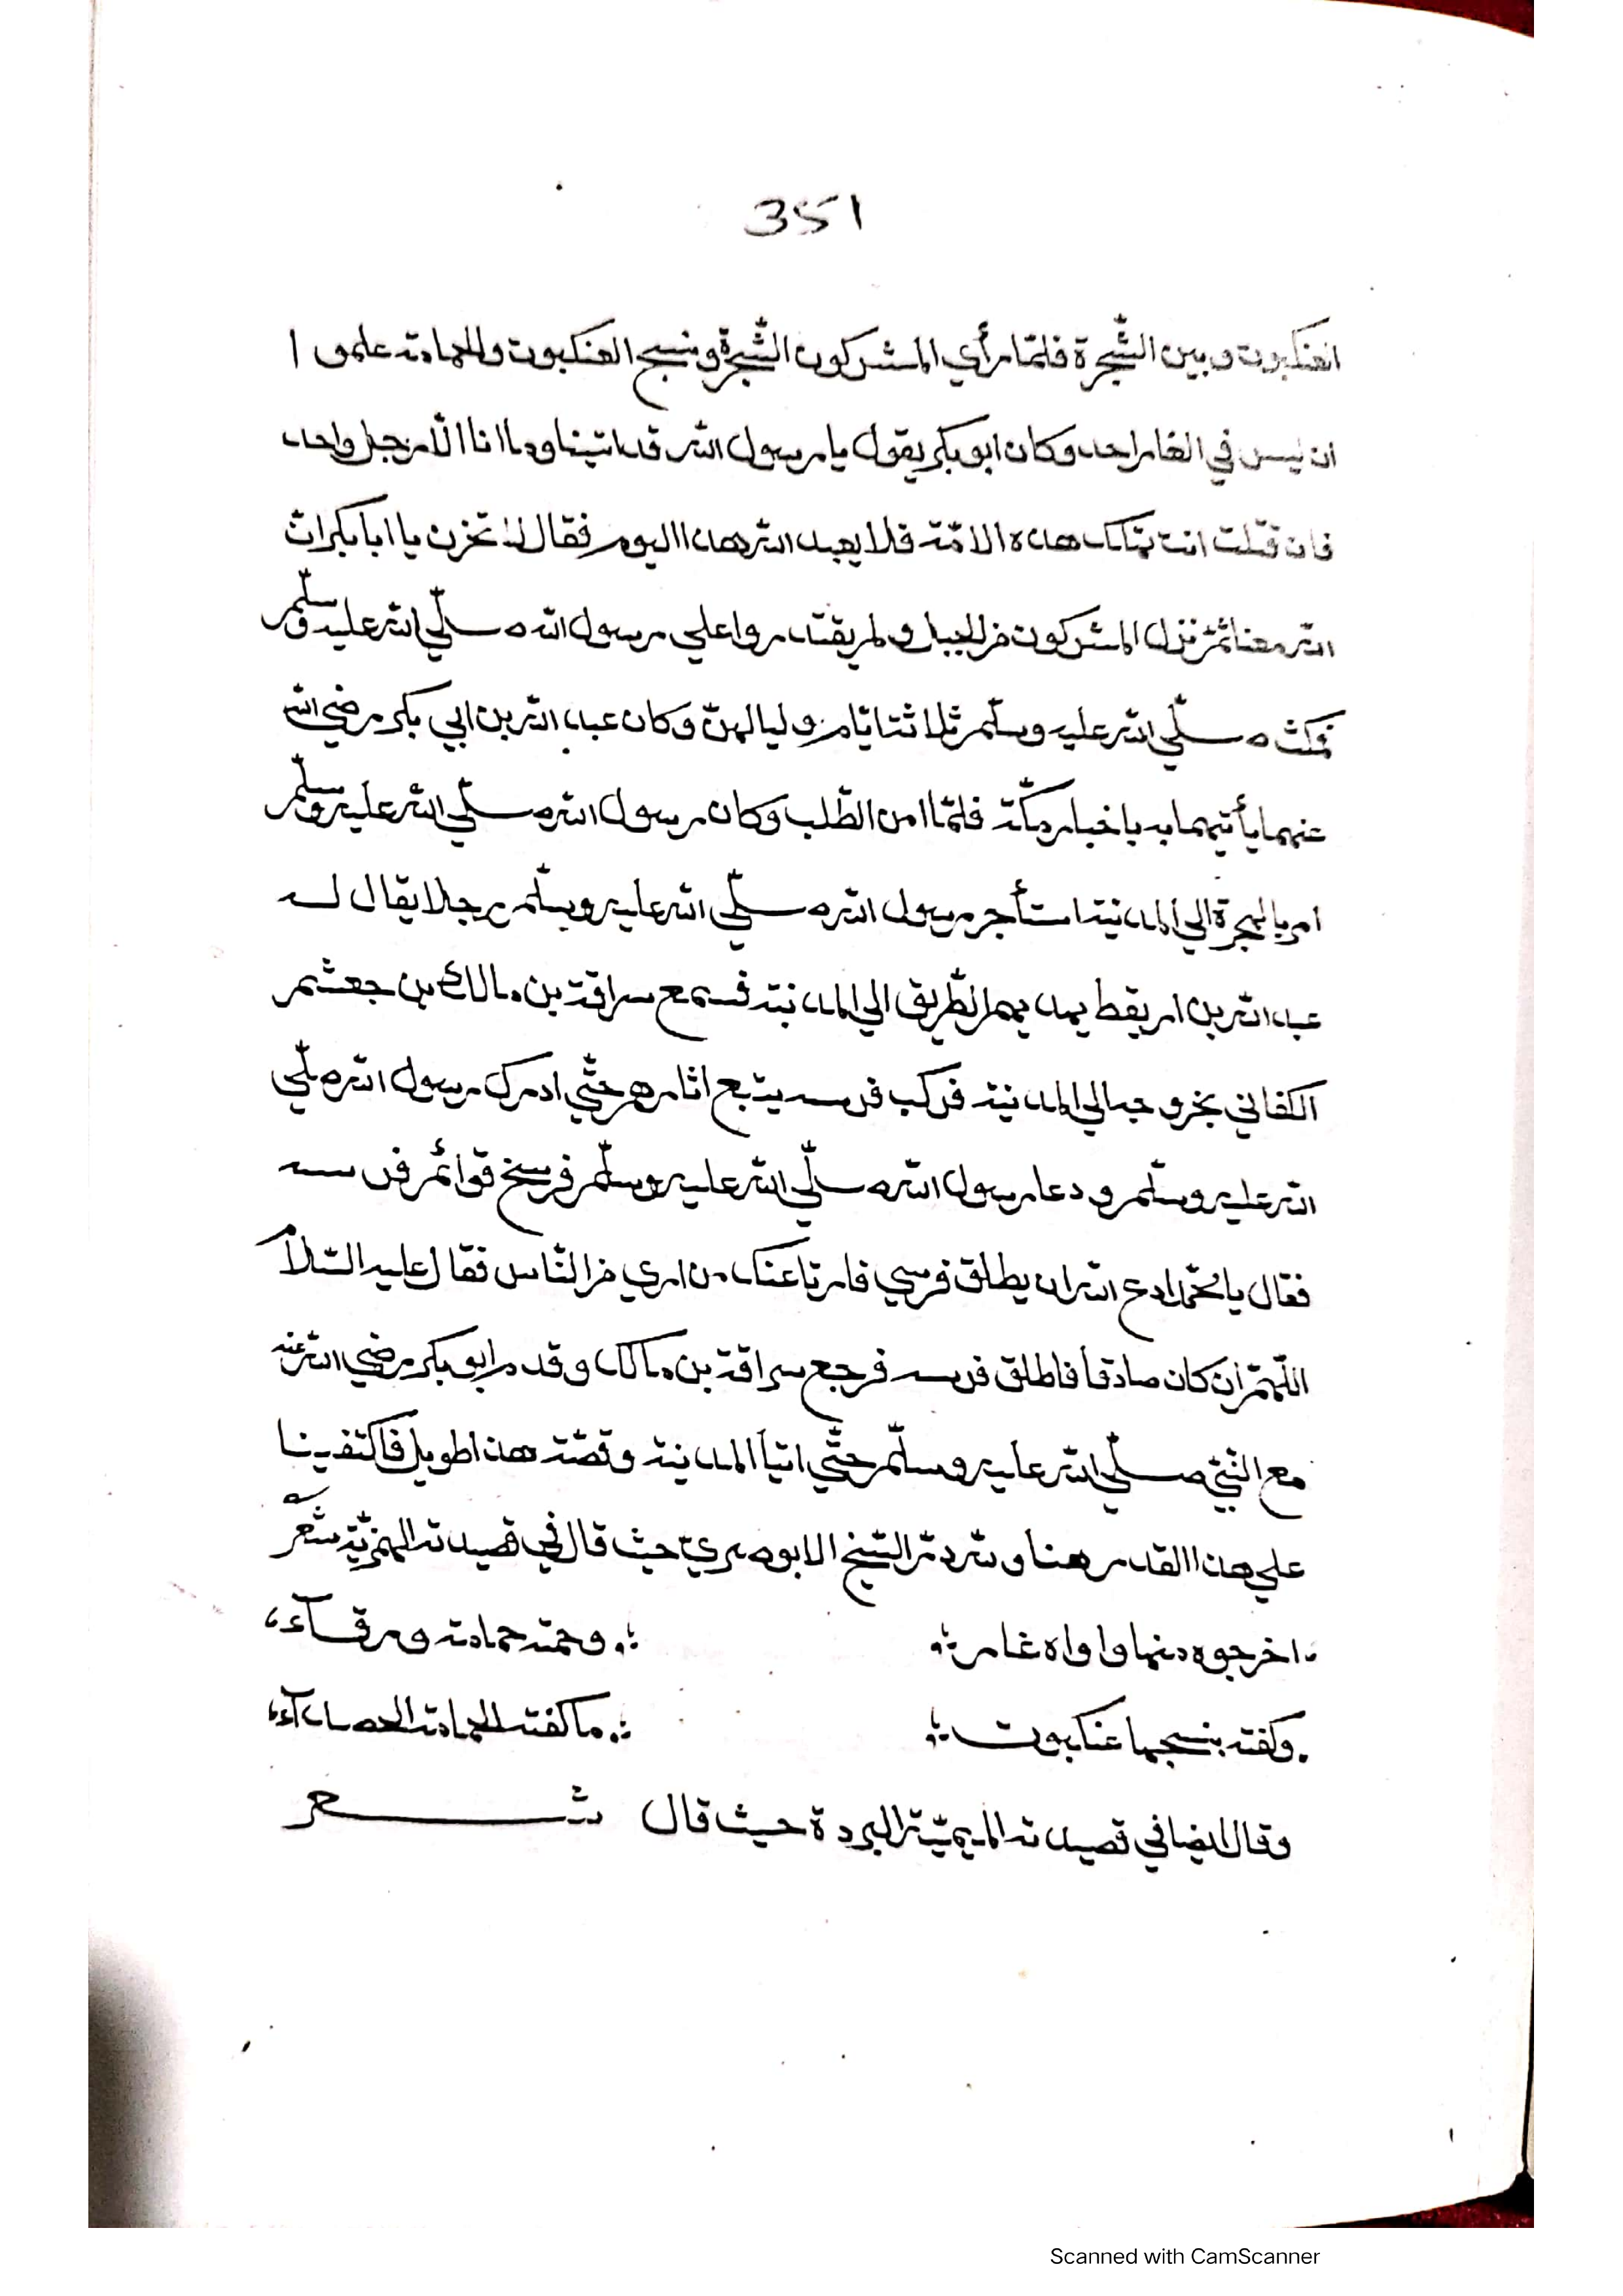 351
العنكبوت وبين الشّجرة فلمّا رأي المشركون الشّجرة ونسج العنكبوت والحمامة علموا
ان ليس في الغار احد وكان ابو بكر يقول يا رسول الله قد اتينا وما انا الّا رجل واحد
فان قتلت انت تهلك هذه الامّة فلا يعبد الله هذا اليوم فقال لا تحزن يا ابا بكر انّ
الله معنا ثمّ نزل المشركون من الجبل ولم يقتدروا علي رسول الله صلّي الله عليه وسلّم
فمكث صلّي الله عليه وسلّم ثلاثة ايّام ولياليهنّ وكان عبد الله بن ابي بكر رضي الله
عنهما يأتيهما به باخبار مكّة فلمّا امن الطّلب وكان رسول الله صلّي الله عليه وسلّم
امر بالهجرة الي المدينة استأجر رسول الله صلّي الله عليه وسلّم رجلا يقال له
عبد الله بن اريقط يهديهم الطّريق الي المدينة فسمع سراقة بن مالك بن جعشم
الكناني بخروجه الي المدينة فركب فرسه يتبع اثارهم حتّي ادرك رسول الله صلّي
الله عليه وسلّم ودعا رسول الله صلّي الله عليه وسلّم فرسخ قوائم فرسه
فقال يا محمّد ادع الله ان يطلق فرسي فارتا عنك من اري من النّاس فقال عليه السّلام
اللّهمّ ان كان صادقاً فاطلق فرسه فرجع سراقة بن مالك وقدم ابو بكر رضي الله عنه
مع النّبيّ صلّي الله عليه وسلّم حتّي اتيا المدينة وقصّة هذا طويل فاكتفينا
علي هذا القدر هنا و الشّيخ الابوصيريّ حيث قال في قصيدته الهمزيّة شعر
اخرجوه منها واواه غار ؞ وحمته حمامة ورقآء،
وكفته بنسجها عنكبوت ؞ ما كفته الحمامة الحصدآء،
وقال ايضا في قصيدته الميميّة البردة حيث قال شعر
Scanned with CamScanner